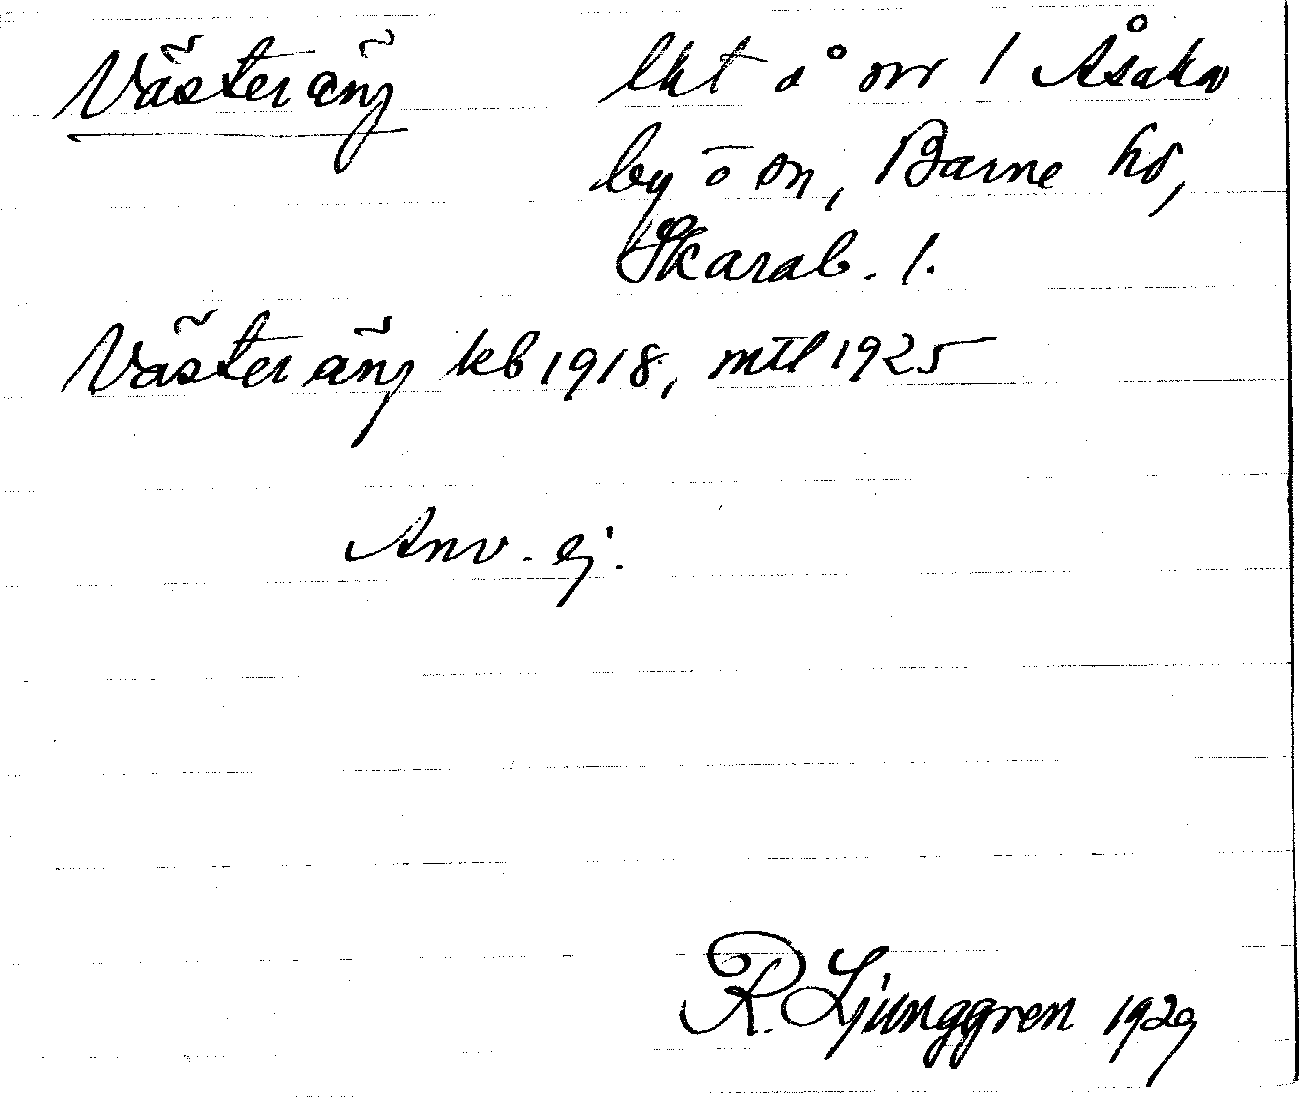 Västeräng lht å nr 1 Åsaka
by o sn, Barne hd,
Skarab. l.
Västeräng kb 1918, mtl 1925
Anv. ej.
R. Ljunggren 1929